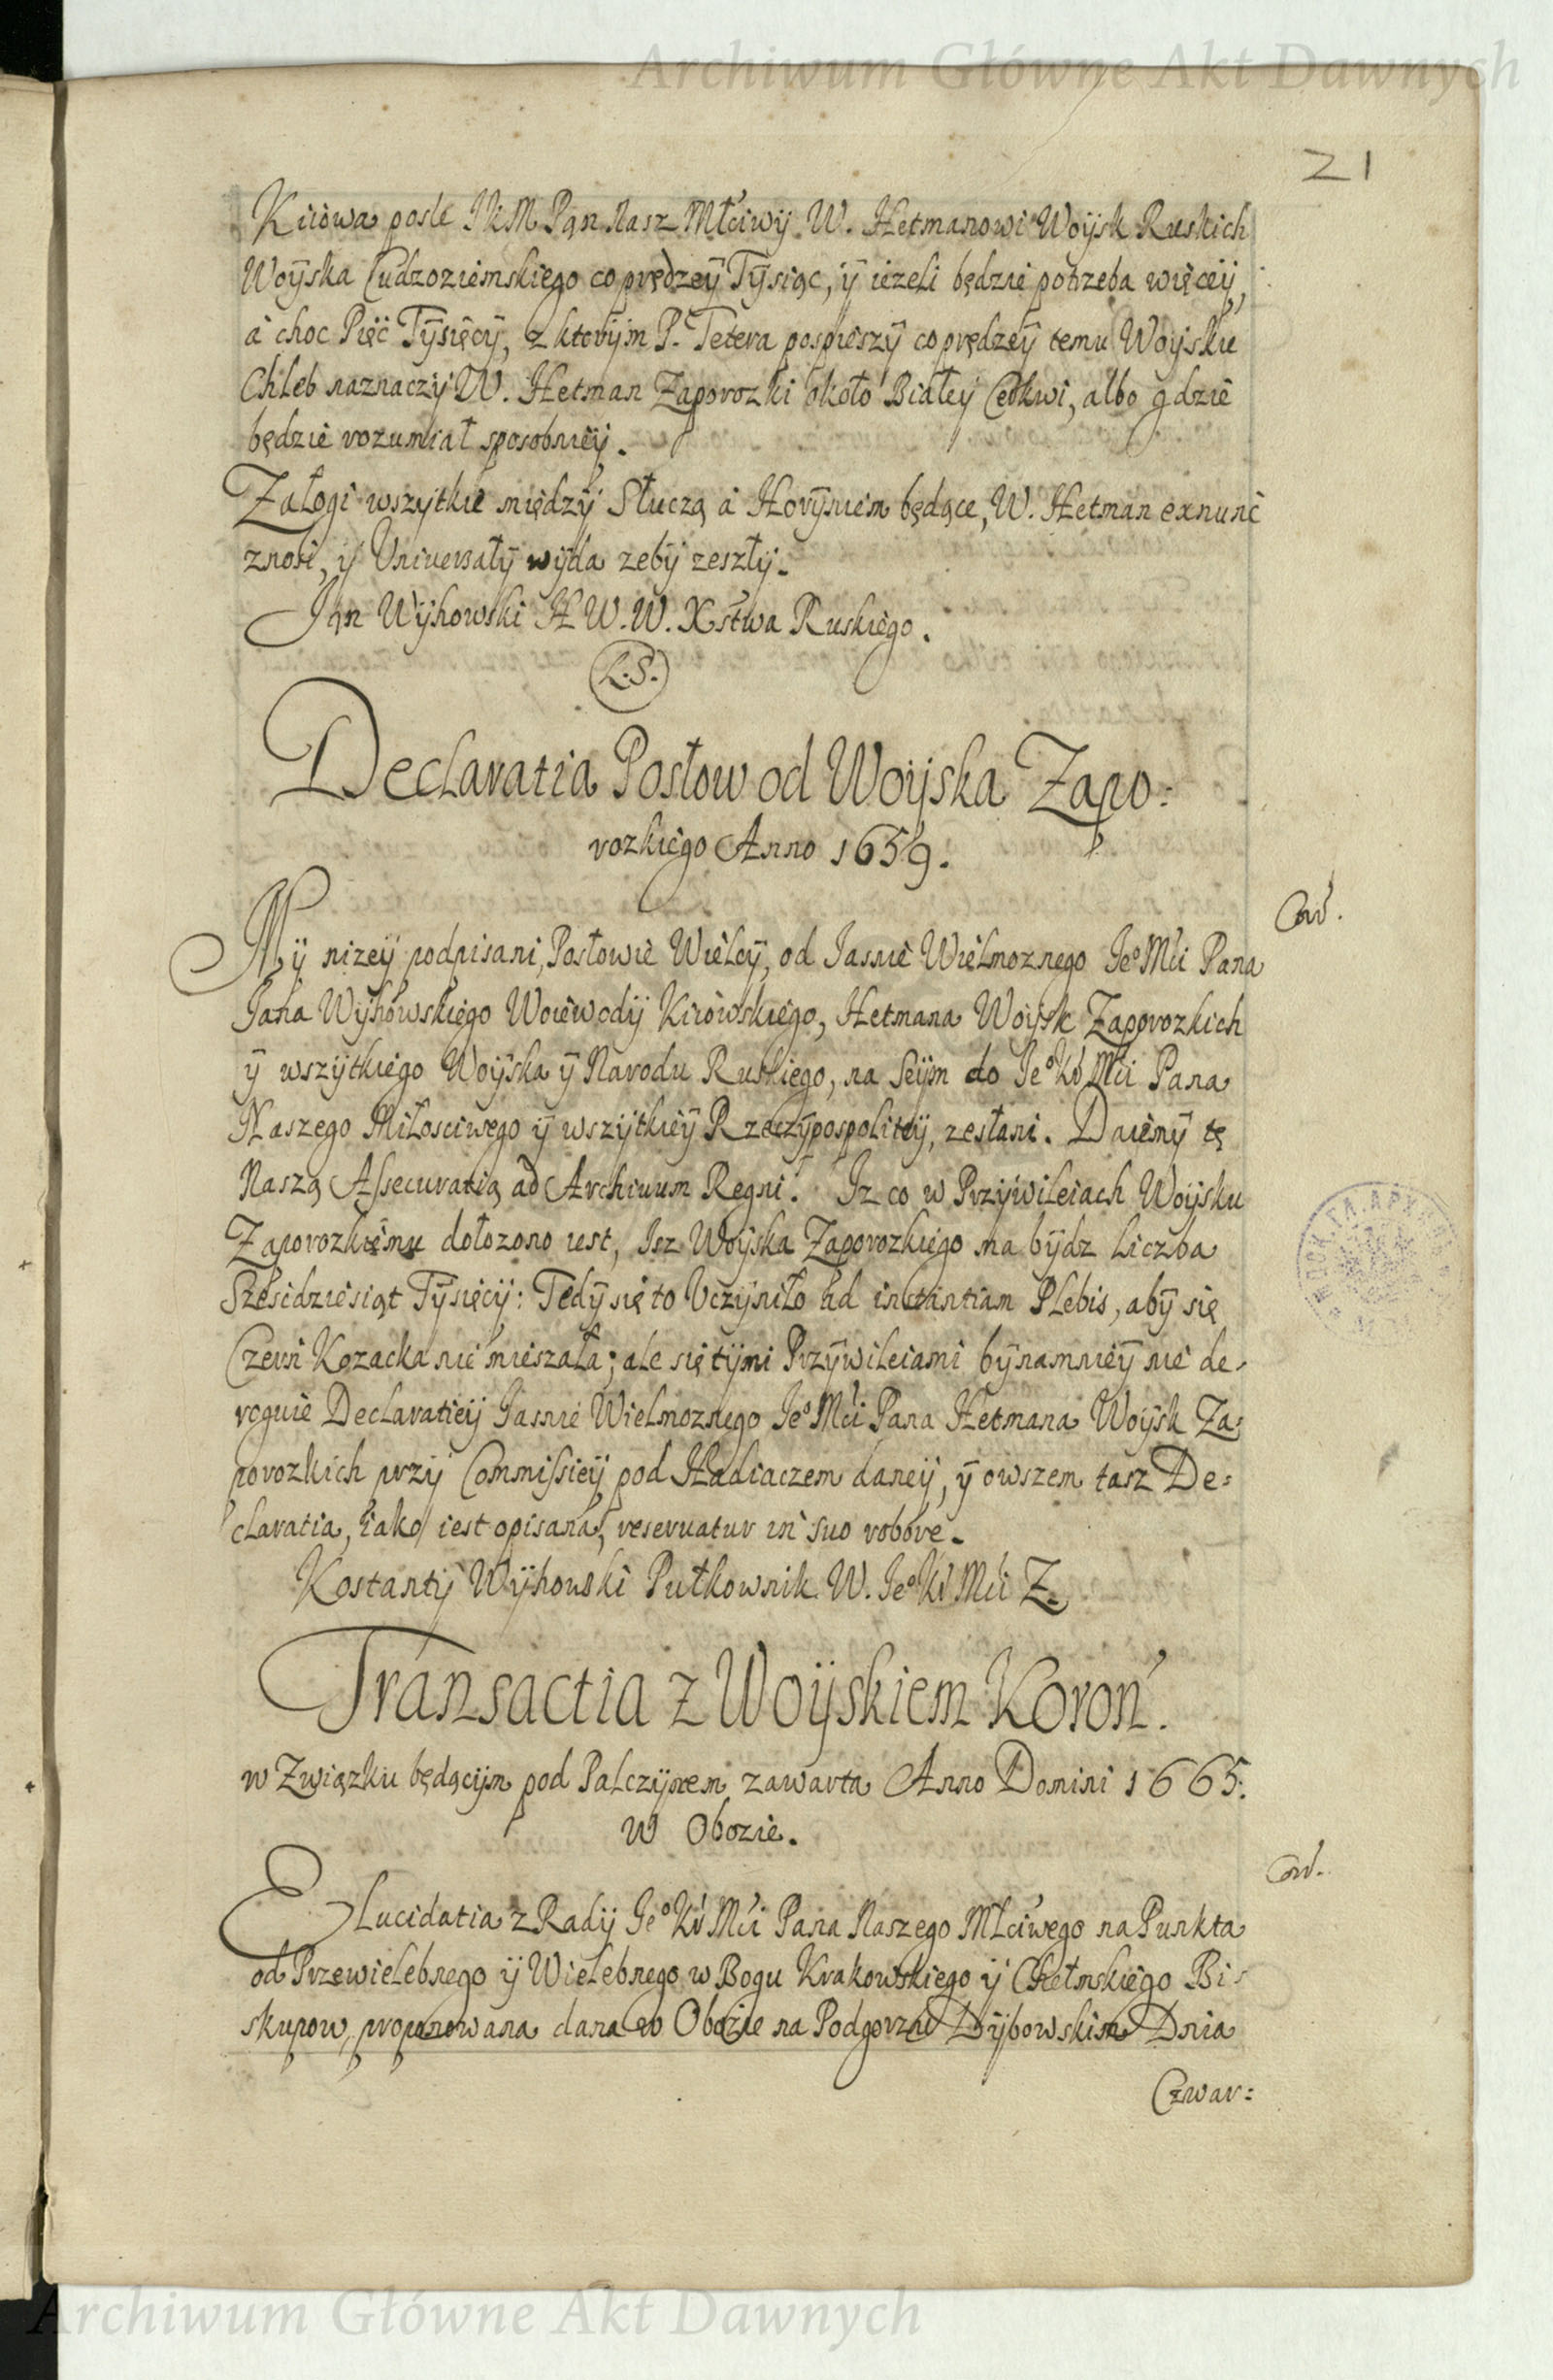 Archiwum Główne Akt Dawnych
21
Kiiowa posle JKM Pąn Nasz Młćiwÿ W. Hetmanowi Woÿsk Ruskich
Woÿska Cudzoziemskiego co prędzeÿ Tÿsiąc, ÿ iezeli będzie potrzeba więceÿ,
à choc Pięć Tÿsięcÿ, z ktorÿm P. Tetera pospieszÿ co prędzeÿ temu Woÿsku
Chleb naznaczÿ W. Hetman Zaporozki około Białeÿ Cerkwi, albo gdzie
będzie rozumiał sposobnieÿ.
Załogi wszÿtkie międzÿ Słuczą à Horÿniem będące, W. Hetman exnunc
znosi, ÿ Uniuersałÿ wÿda zebÿ zeszłÿ.
Ján Wÿhowski H W. W. Xstwa Ruskiego.
L.S.
Declaratia Posłow od Woÿska Zapo:
rozkiego Anno 1659.
Cor.
Mÿ nizeÿ podpisani, Posłowie Wielcÿ, od Jasnie Wielmoznego Jeº Mći Pana
Jana Wÿhowskiego Woiewodÿ Kiiowskiego, Hetmana Woÿsk Zaporozkich
ÿ wszÿtkiego Woÿska ÿ Narodu Ruskiego, na Seÿm do Jeº Kr Mći Pana
Naszego Miłosciwego ÿ wszÿtkieÿ Rzeczÿpospoliteÿ, zesłani. Daiemÿ tę
Naszą Assecuratią ad Archiuum Regni. Iz co w Przÿwileiach Woÿsku
Zaporozkiemu dołozono iest, Isz Woÿska Zaporozkiego ma bÿdz Liczba
Szescdziesiąt Tÿsięcÿ: Tedÿ się to Uczÿniło ad instantiam Plebis, abÿ się
Czerń Kozacka nie mieszała; ale się tÿmi Przÿwileiami bÿnamnieÿ nie de-
roguie Declaratieÿ Jasnie Wielmoznego Jeº Mći Pana Hetmana Woÿsk Za:
porozkich przÿ Commissieÿ pod Hadiaczem daneÿ, ÿ owszem tasz De:
claratia, iako iest opisana, reseruatur in suo robore.
Kostantÿ Wÿhowski Pułkownik W. Jeº Kr Mći Z.
Transactia z Woÿskiem Koroń.
w Związku będącÿm pod Palczÿnem zawarta Anno Domini 1665.
w Obozie.
Cor.
Elucidatia z Radÿ Jeº Kr Mći Pana Naszego Młciwego na Punkta
od Przewielebnego ÿ Wielebnego w Bogu Krakowskiego ÿ Chełmskiego Bi-
skupow, proponowana dana w Obozie na Podgorzu Dÿbowskim Dnia
Czwar:
Archiwum Główne Akt Dawnych